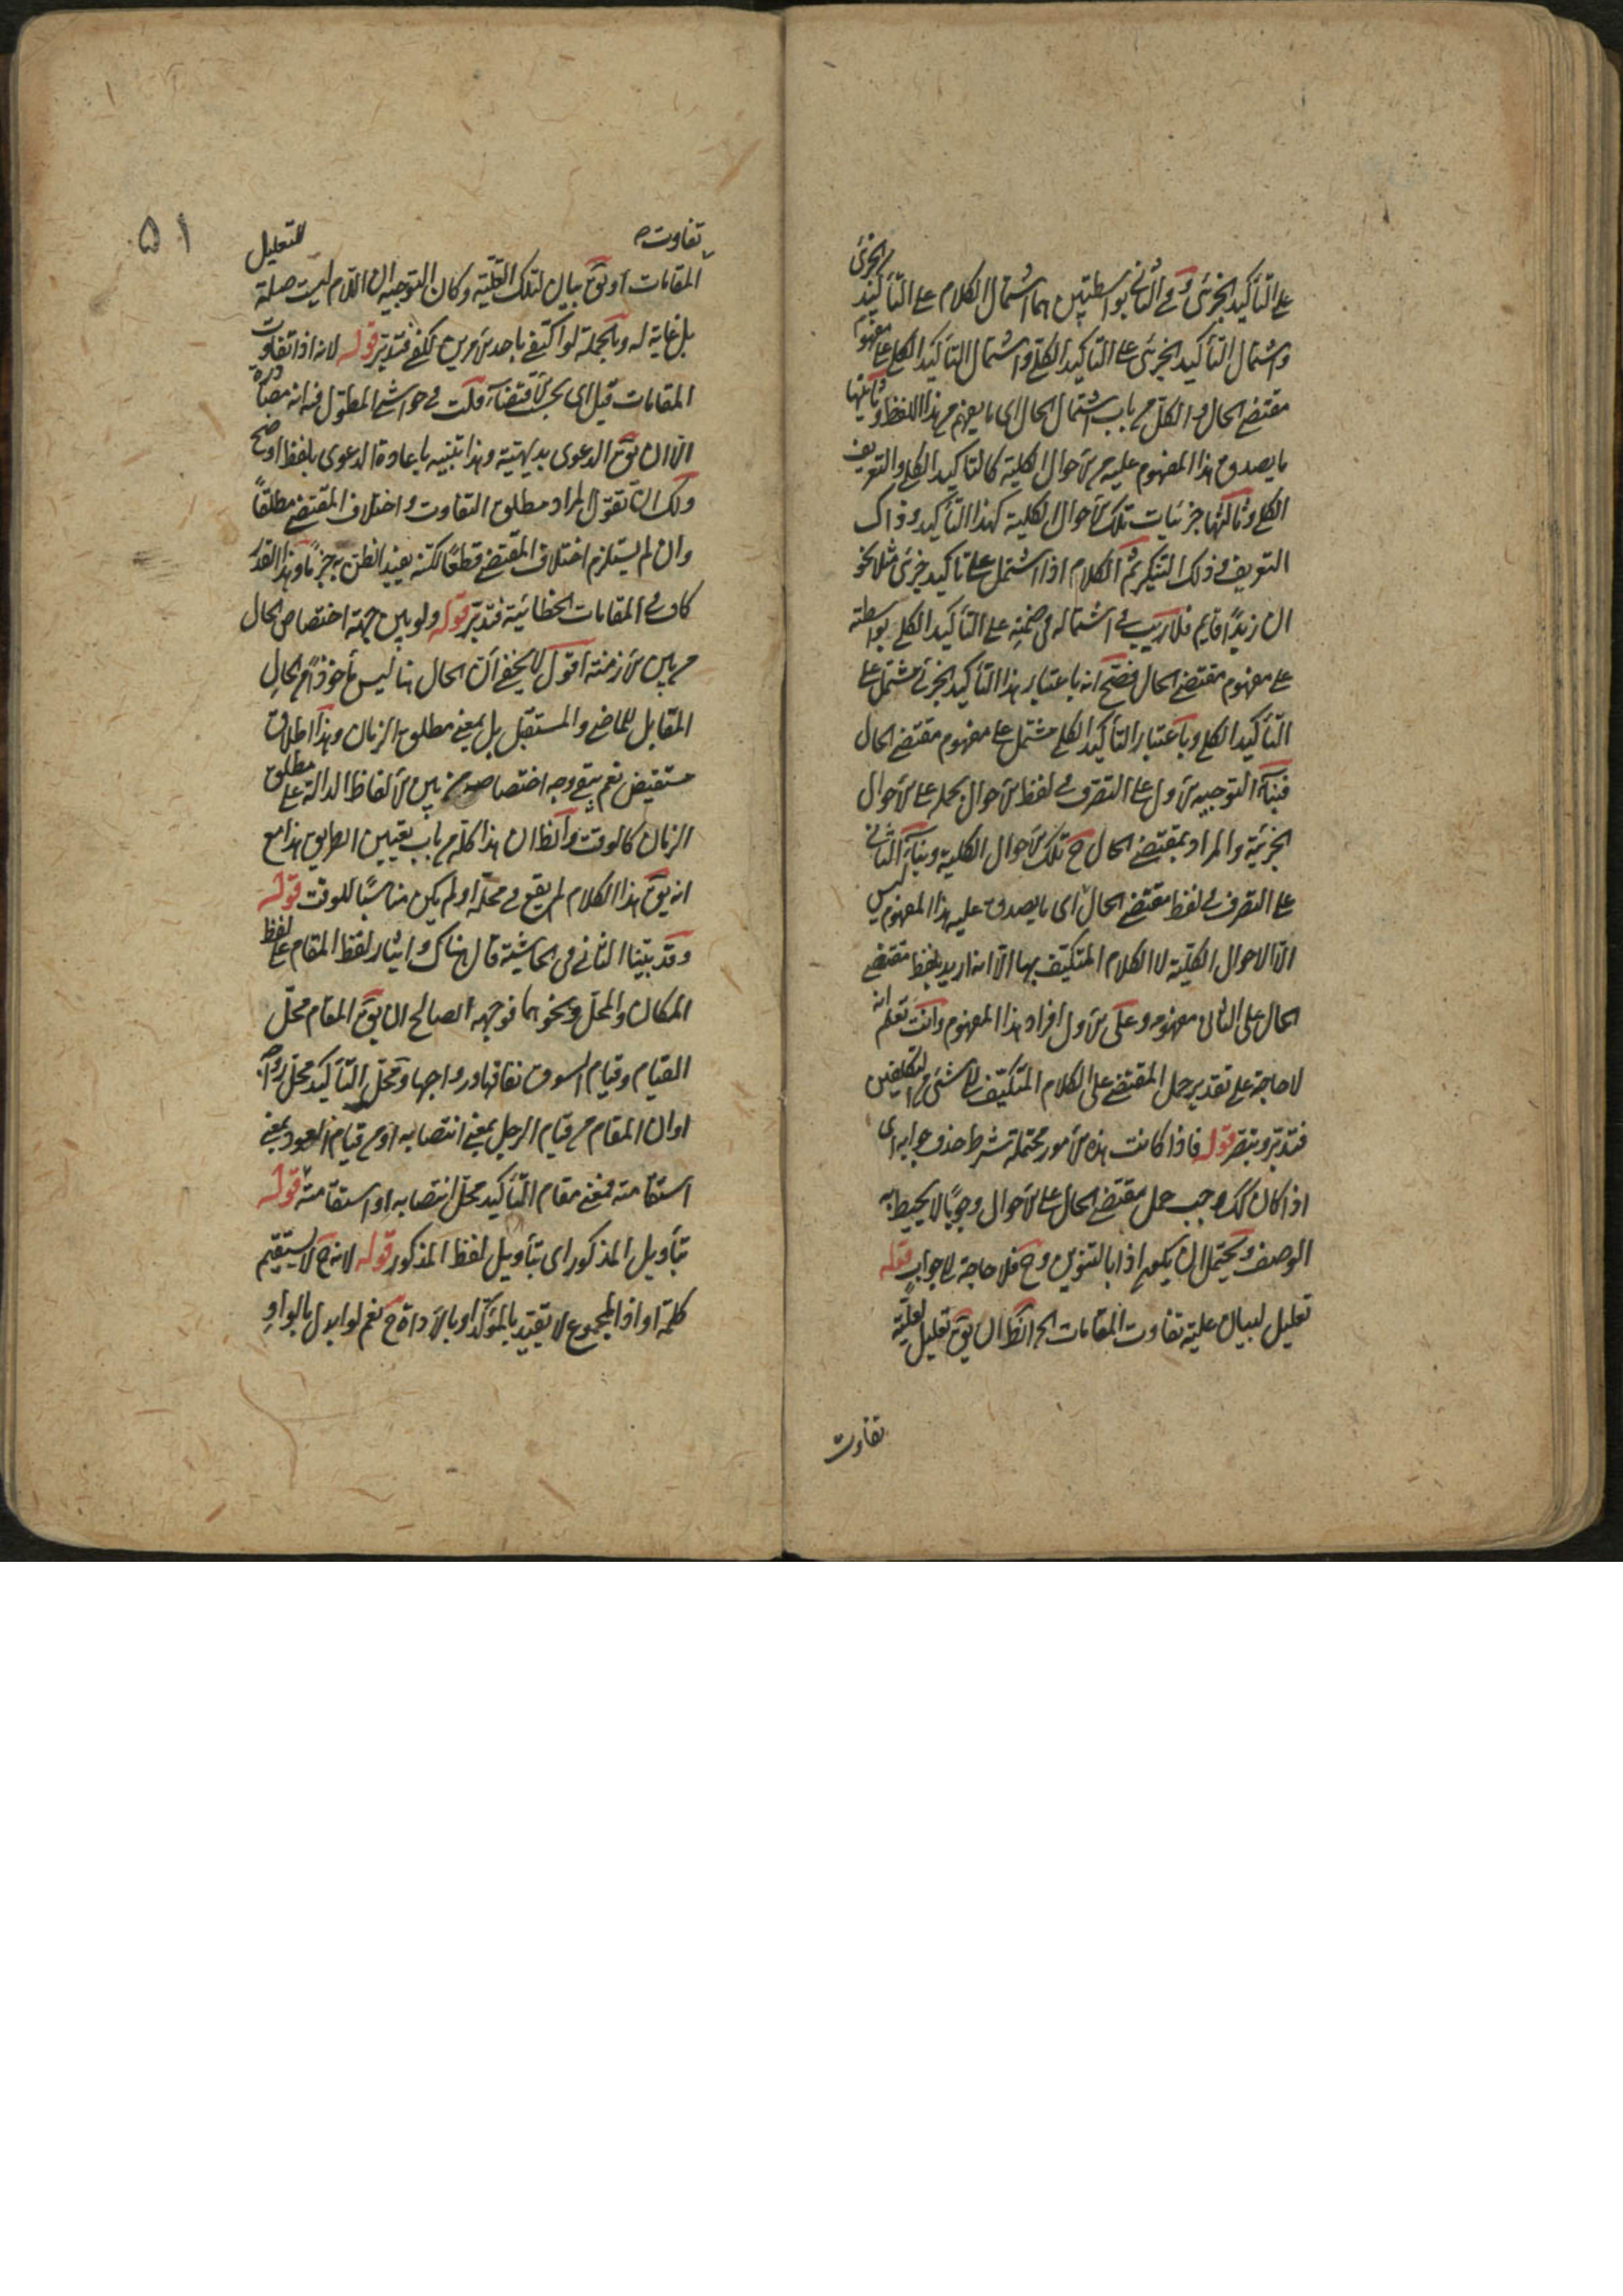 على التأكيد الجزئى وفى الثانى بواسطتين هما اشتمال الكلام على التأكيد الجزئى
واشتمال التأكيد الجزئى على التأكيد الكلى واشتمال التأكيد الكلى على مفهوم
مقتضى الحال والكل من باب اشتمال الحال اى ما يفهم من هذا اللفظ وثانيها
ما يصدق هذا المفهوم عليه من الاحوال الكلية كالتأكيد الكلى والتعريف
الكلى وثالثها جزئيات تلك الاحوال الكلية كهذا التأكيد وذاك
التعريف وذلك التنكير ثم الكلام اذا اشتمل على تأكيد جزئى مثلا نحو
ان زيدًا قايم فلا ريب فى اشتماله فى ضمنه على التأكيد الكلى بواسطته
على مفهوم مقتضى الحال فصح انه باعتبار هذا التأكيد الجزئى مشتمل على
التأكيد الكلى وباعتبار التأكيد الكلى مشتمل على مفهوم مقتضى الحال
فبناء التوجيه الاول على التصرف فى لفظ الاحوال بحمله على الاحوال
الجزئية والمراد بمقتضى الحال ح تلك الاحوال الكلية وبناء الثانى
على التصرف فى لفظ مقتضى الحال اى ما يصدق عليه هذا المفهوم ليس
الا الاحوال الكلية لا الكلام المتكيف بها الا انه اريد بلفظ مقتضى
الحال على الثانى مفهومه وعلى الاول افراد هذا المفهوم وانت تعلم انه
لا حاجة على تقدير حمل المقتضى على الكلام المتكيف الى شئ من التكلفين
فتدبر وتبصر قوله فاذا كانت هذه الامور محتملة شرط حذف جوابه اى
اذا كان كك وجب حمل مقتضى الحال على الاحوال وجوبًا لا يحيط به
الوصف ويحتمل ان يكون اذا بالتنوين وح فلا حاجة الى جواب قوله
تعليل لبيان علية تفاوت المقامات الخ الظ ان يق تعليل لعلية
تفاوت
۵۱
تفاوت للتعليل
المقامات او يق بيان لتلك العلية وكان التوجيه ان اللام ليست صلة
بل غاية له وبالجملة لو اكتفى باحد الامرين لكفى فتدبر قوله لانه اذا تفاوت
المقامات قيل اى بحسب الاقتضاء قلت فى حواشى المطول فيه انه مصادرة
الا ان يق الدعوى بديهية وهذا تنبيه باعادة الدعوى بلفظ اوضح
ولك ان تقول المراد مطلق التفاوت واختلاف المقتضى مطلقًا
وان لم يستلزم اختلاف المقتضى قطعًا لكنه يفيد الظن به جزمًا وهذا القدر
كاف فى المقامات الخطابية فتدبر قوله ولو بين جهة اختصاص الحال
من بين الازمنة اقول لا يخفى ان الحال هنا ليس مأخوذًا من الحال
المقابل للماضى والمستقبل بل بمعنى مطلق الزمان وهذا اطلاق
مستفيض نعم يبقى وجه اختصاصه من بين الالفاظ الدالة على مطلق
الزمان كالوقت والظ ان هذا كله من باب تعيين الطريق هذا مع
انه يق هذا الكلام لم يقع فى محله او لم يكن مناسبًا للوقت قوله
وقد بيّنا الثانى فى الحاشية قال هناك وايثار لفظ المقام على لفظ
المكان والمحل ونحوهما فوجهه الصالح ان يق المقام محل
القيام وقيام السوق نفاقها ورواجها ومحل التأكيد محل رواجه
او ان المقام من قيام الرجل بمعنى انتصابه او من قيام العود بمعنى
استقامته فمعنى مقام التأكيد محل انتصابه او استقامته قوله
بتأويل المذكور اى بتأويل لفظ المذكور قوله لانه ح لا يستقيم
كلمة او اذ المجموع لا يقيد بالمؤكد او بالاداة ح نعم لو ابدل بالواو